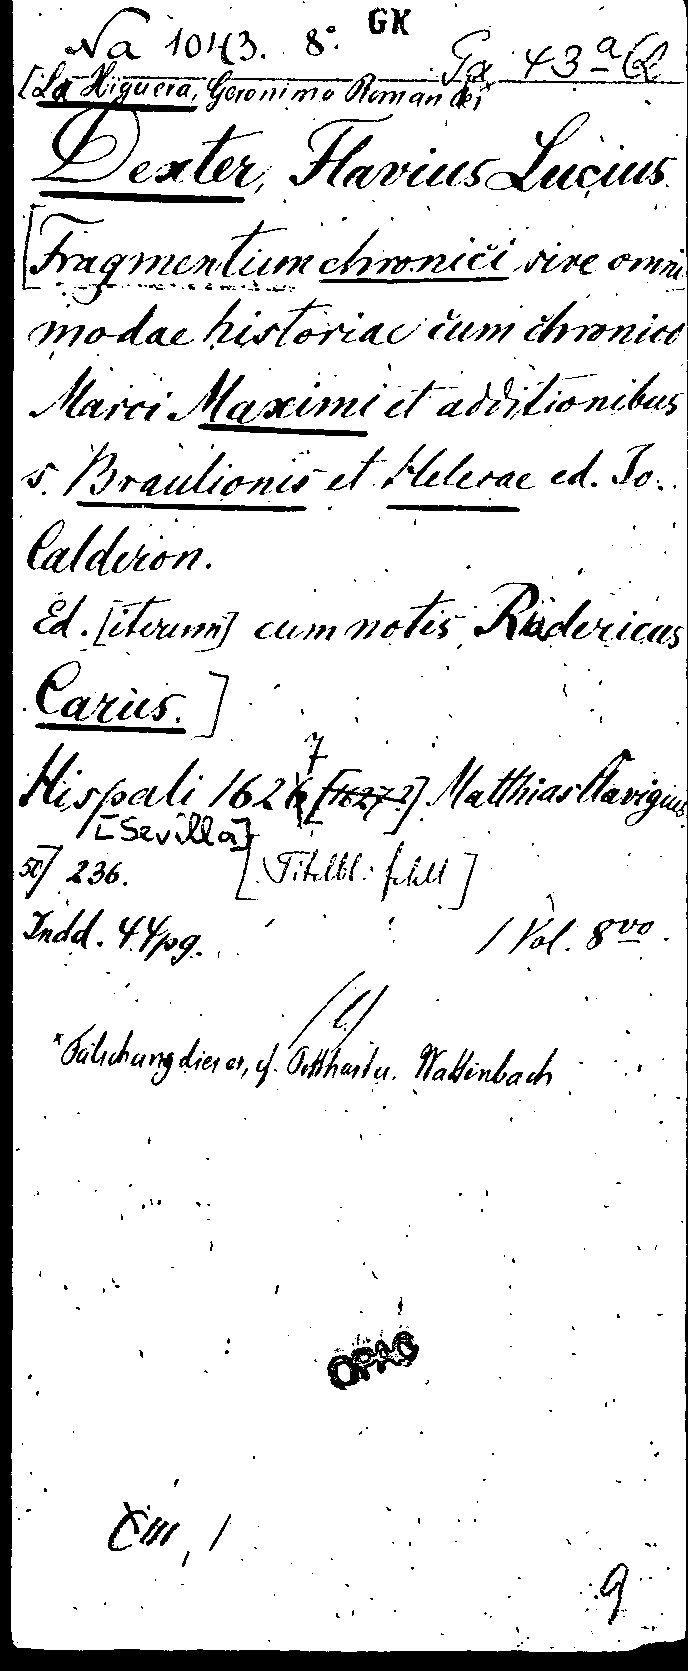 Na 1043. 8°. GK
[La Higuera, Geronimo Roman de]*
Dexter, Flavius Lucius.
[Fragmentum chronici sive omni
modae historiae cum chronico
Marci Maximi et additionibus
s. Braulionis et Helecae ed. Jo.
Calderon.
Ed. [iterum] cum notis Rodericus
Carus.]
7
Hispali 1626 [1627?] Matthias Clavigius
[Sevilla]
50] 236. [Titelbl. fehlt]
Indd. 44pg. 1 Vol. 8vo.
(l.)
*Fälschung dieses, cf. Potthast u. Wattenbach
OPAC
CIII, 1
9